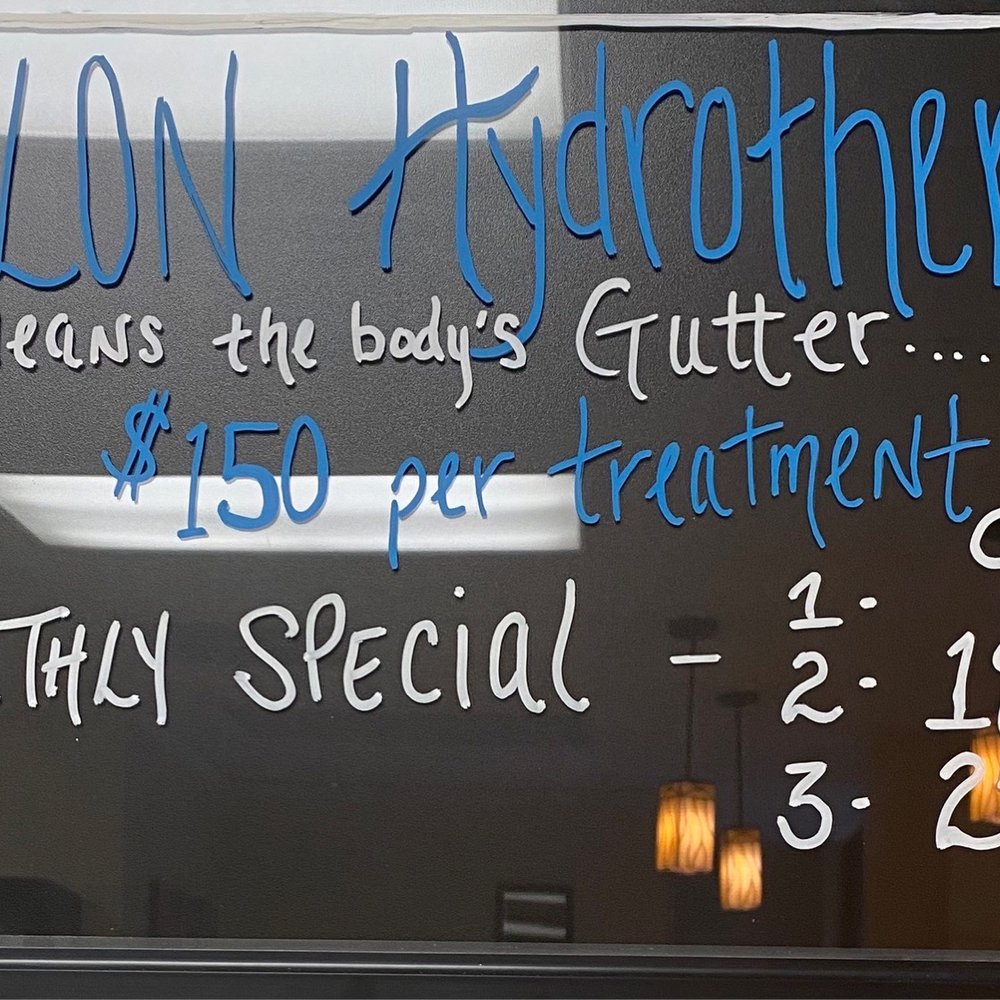 LON Hydrother
eans the body's Gutter.....
$150 per treatment
THLY SPECial - 1-
2- 1
3- 2